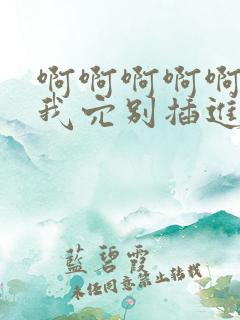 啊啊啊啊啊
我穴别插进
藍碧霞
未经同意禁止转载